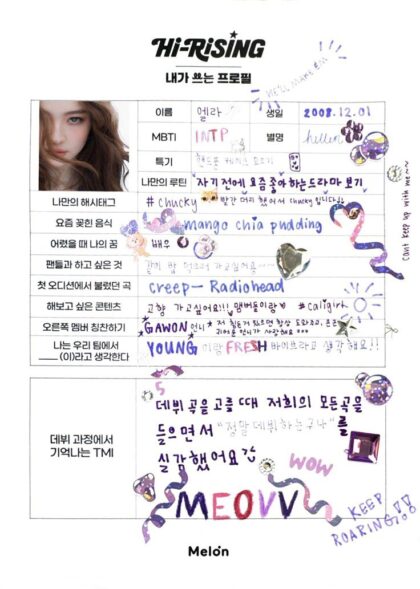 Hi-RiSiNG
내가 쓰는 프로필
이름 엘라 생일 2008.12.01
MBTI INTP 별명
특기 핸드폰 케이스 모으기
나만의 루틴 자기 전에 요즘 좋아하는 드라마 보기
나만의 해시태그 #chucky 빨간 머리 했어서 chucky 입니다
요즘 꽂힌 음식 mango chia pudding
어렸을 때 나의 꿈 배우
팬들과 하고 싶은 것 같이 밥 먹으러 가고싶어요
첫 오디션에서 불렀던 곡 creep - Radiohead
해보고 싶은 콘텐츠 고향 가고싶어요!! 멤버들이랑 #caligirk
오른쪽 멤버 칭찬하기 GAWON 언니 저 힘든거 있으면 항상 도와주고,
귀여운 언니가 사랑해요
나는 우리 팀에서
____ (이)라고 생각한다 YOUNG 이랑 FRESH 바이브라고 생각해요!!
데뷔 과정에서
기억나는 TMI
데뷔곡을 고를 때 저희의 모든곡을
들으면서 "정말 데뷔하는구나"를
실감했어요
wow
MEOVV
KEEP
ROARING!!
Cant keep up with me~~
Melon